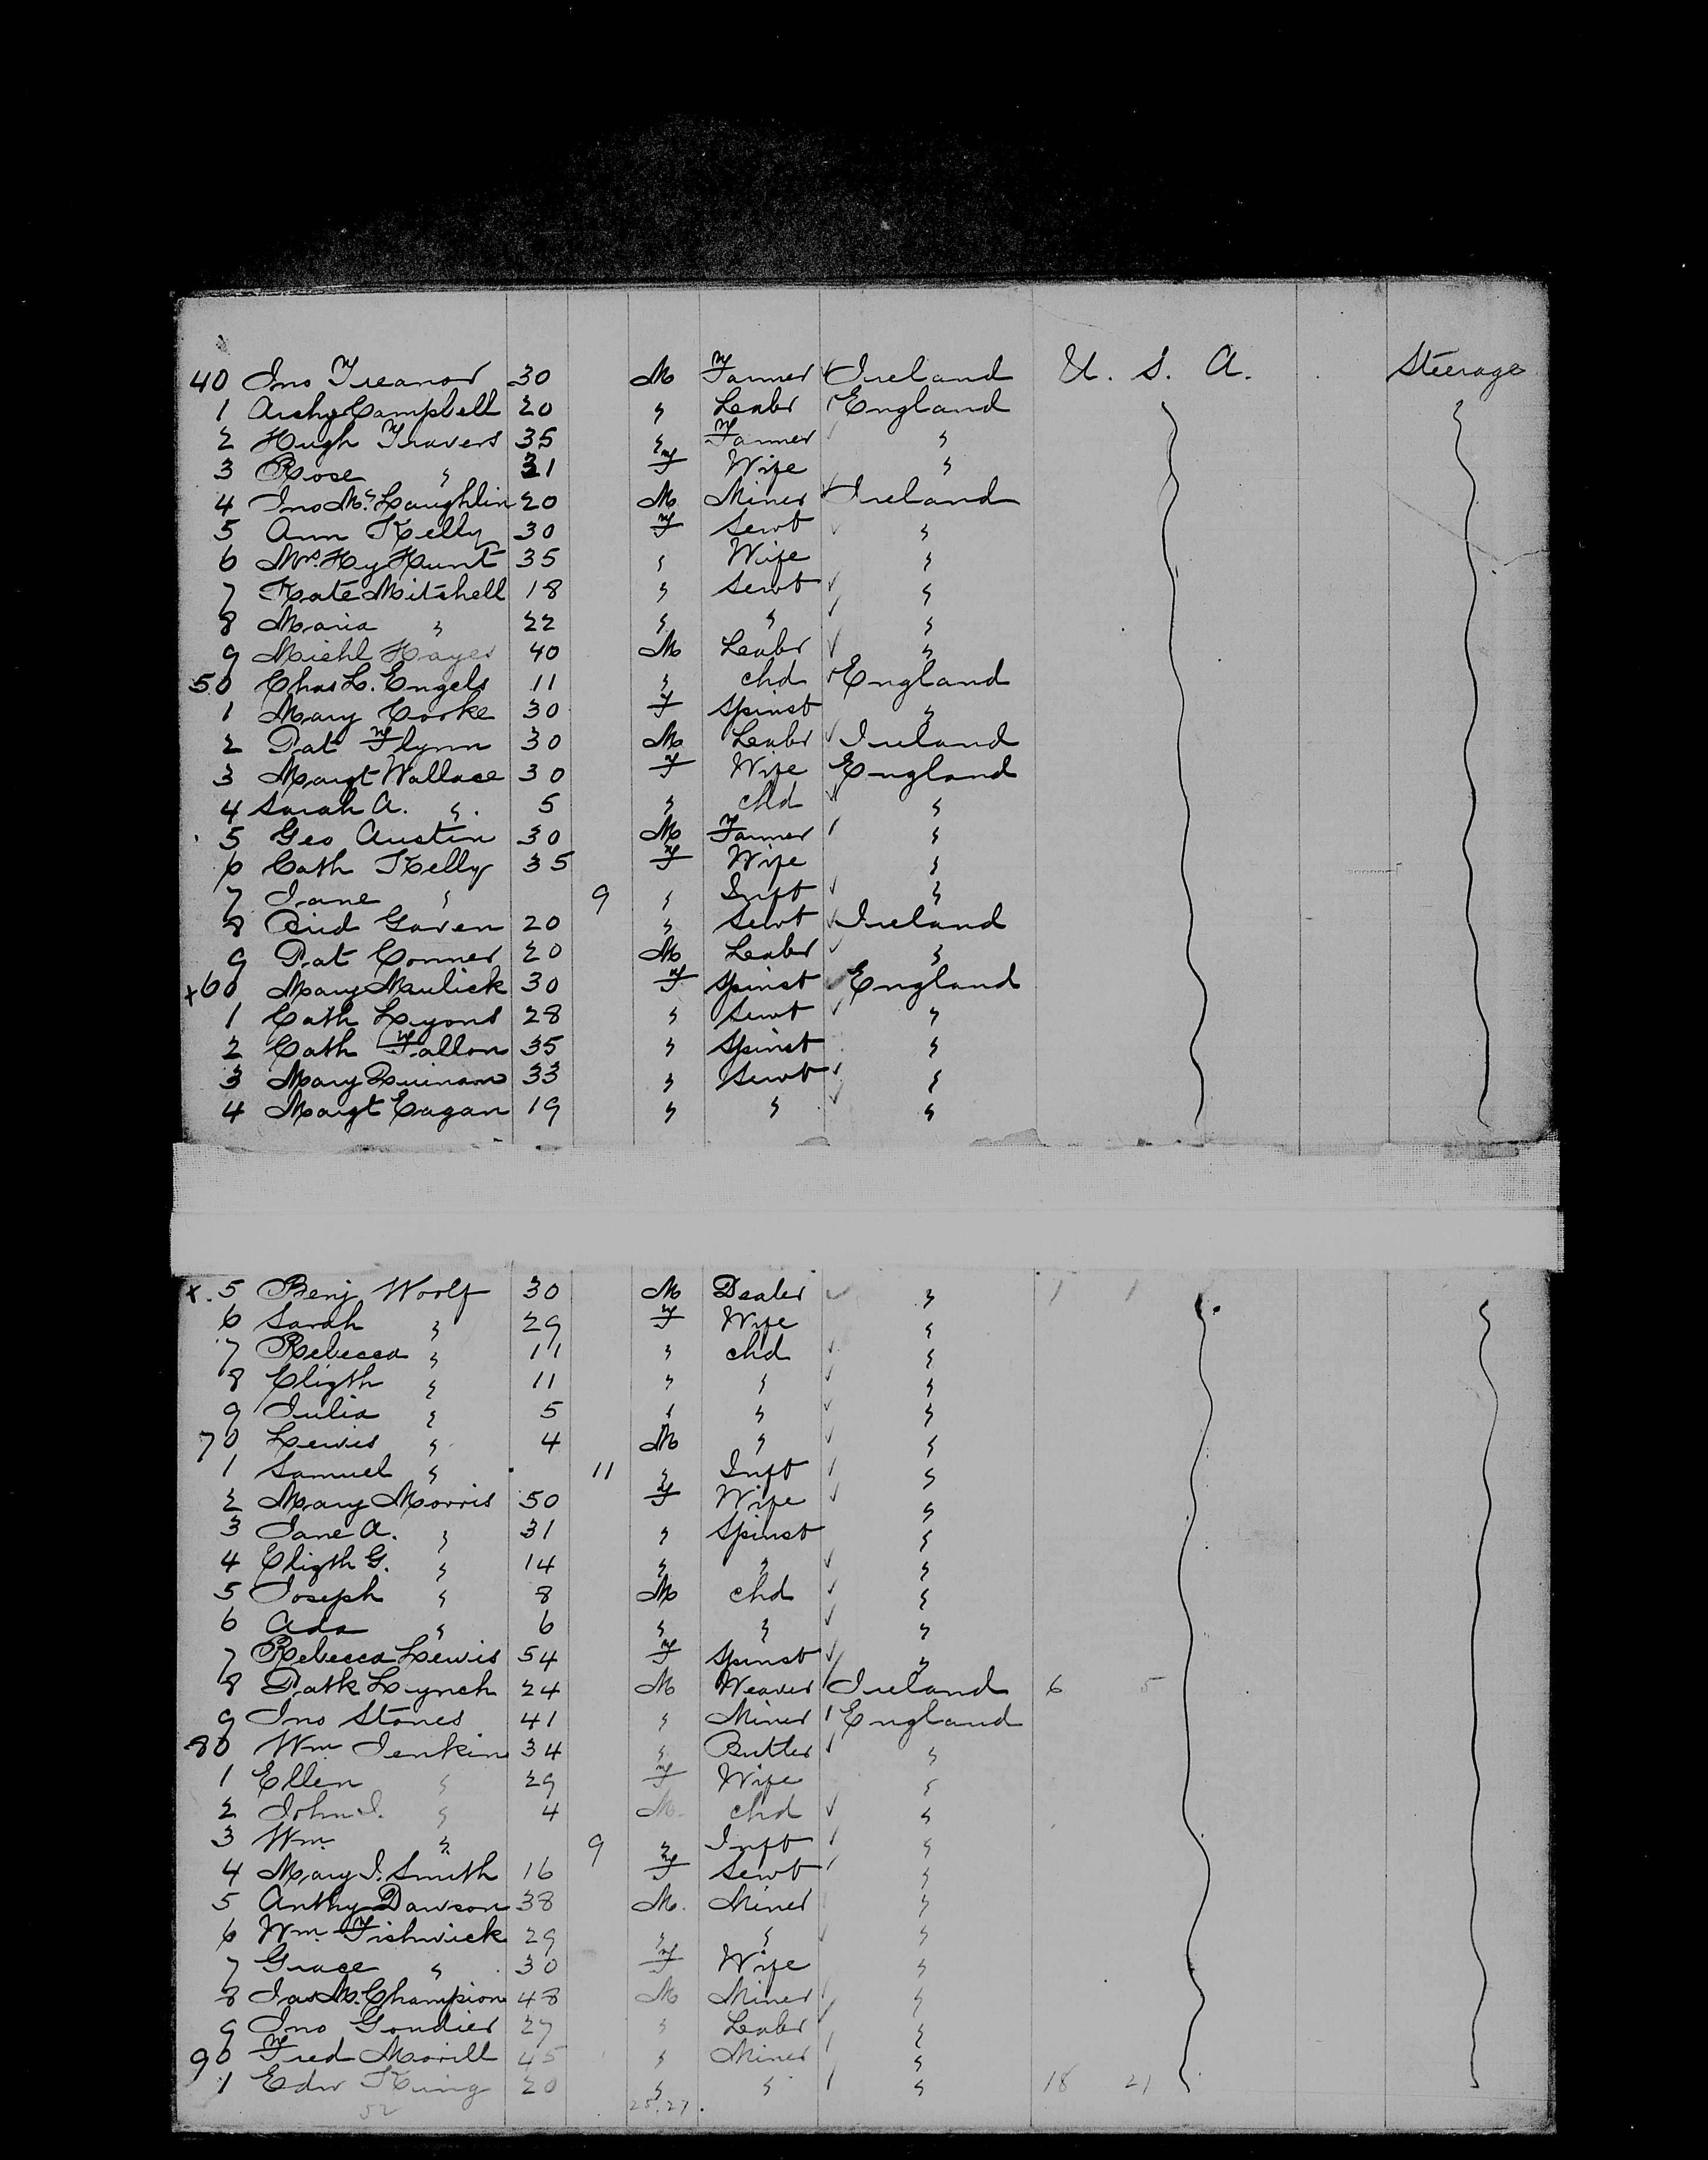 40 Jno Treanor 30 M Farmer Ireland U. S. A. Steerage
1 Archy Campbell 20 " Labr England
2 Hugh Travers 35 " Farmer "
3 Rose " 31 F Wife "
4 Jno McLaughlin 20 M Miner Ireland
5 Ann Kelly 30 F Servt "
6 Mrs. Hy Hunt 35 " Wife "
7 Kate Mitchell 18 " Servt "
8 Maria " 22 " " "
9 Michl Hayes 40 M Labr "
50 Chas L. Engels 11 " chd England
1 Mary Cooke 30 F Spinst "
2 Pat Flynn 30 M Labr Ireland
3 Margt Wallace 30 F Wife England
4 Sarah A. " 5 " chd "
5 Geo Austin 30 M Farmer "
6 Cath Kelly 35 F Wife "
7 Jane " 9 " Inft "
8 Brid Gaven 20 " Servt Ireland
9 Pat Conner 20 M Labr "
x60 Mary Mulick 30 F Spinst England
1 Cath Lyons 28 " Servt "
2 Cath Fallon 35 " Spinst "
3 Mary 33 " Servt "
4 Margt Eagan 19 " " "
x. 5 Benj Woolf 30 M Dealer " 1 1
6 Sarah " 29 F Wife "
7 Rebecca " 11 " chd "
8 Elizth " 11 " " "
9 Julia " 5 " " "
70 Lewis " 4 M " "
1 Samuel " 11 " Inft "
2 Mary Morris 50 F Wife "
3 Jane A. " 31 " Spinst "
4 Elizth G. " 14 " " "
5 Joseph " 8 M chd "
6 Ada " 6 " " "
7 Rebecca Lewis 54 F Spinst "
8 Patk Lynch 24 M Weaver Ireland 6 5
9 Jno Stones 41 " Miner England
80 Wm Jenkin 34 " Butler "
1 Ellen " 29 F Wife "
2 John J. " 4 M. chd "
3 Wm " 9 " Inft "
4 Mary J. Smith 16 F Servt "
5 Anthy Dawson 38 M. Miner "
6 Wm Fishwick 29 " " "
7 Grace " 30 F Wife "
8 Jas M. Champion 48 M Miner "
9 Jno Goudier 27 " Labr "
90 Fred Morill 45 " Miner "
1 Edw King 20 " " " 18 21
52 25.27.